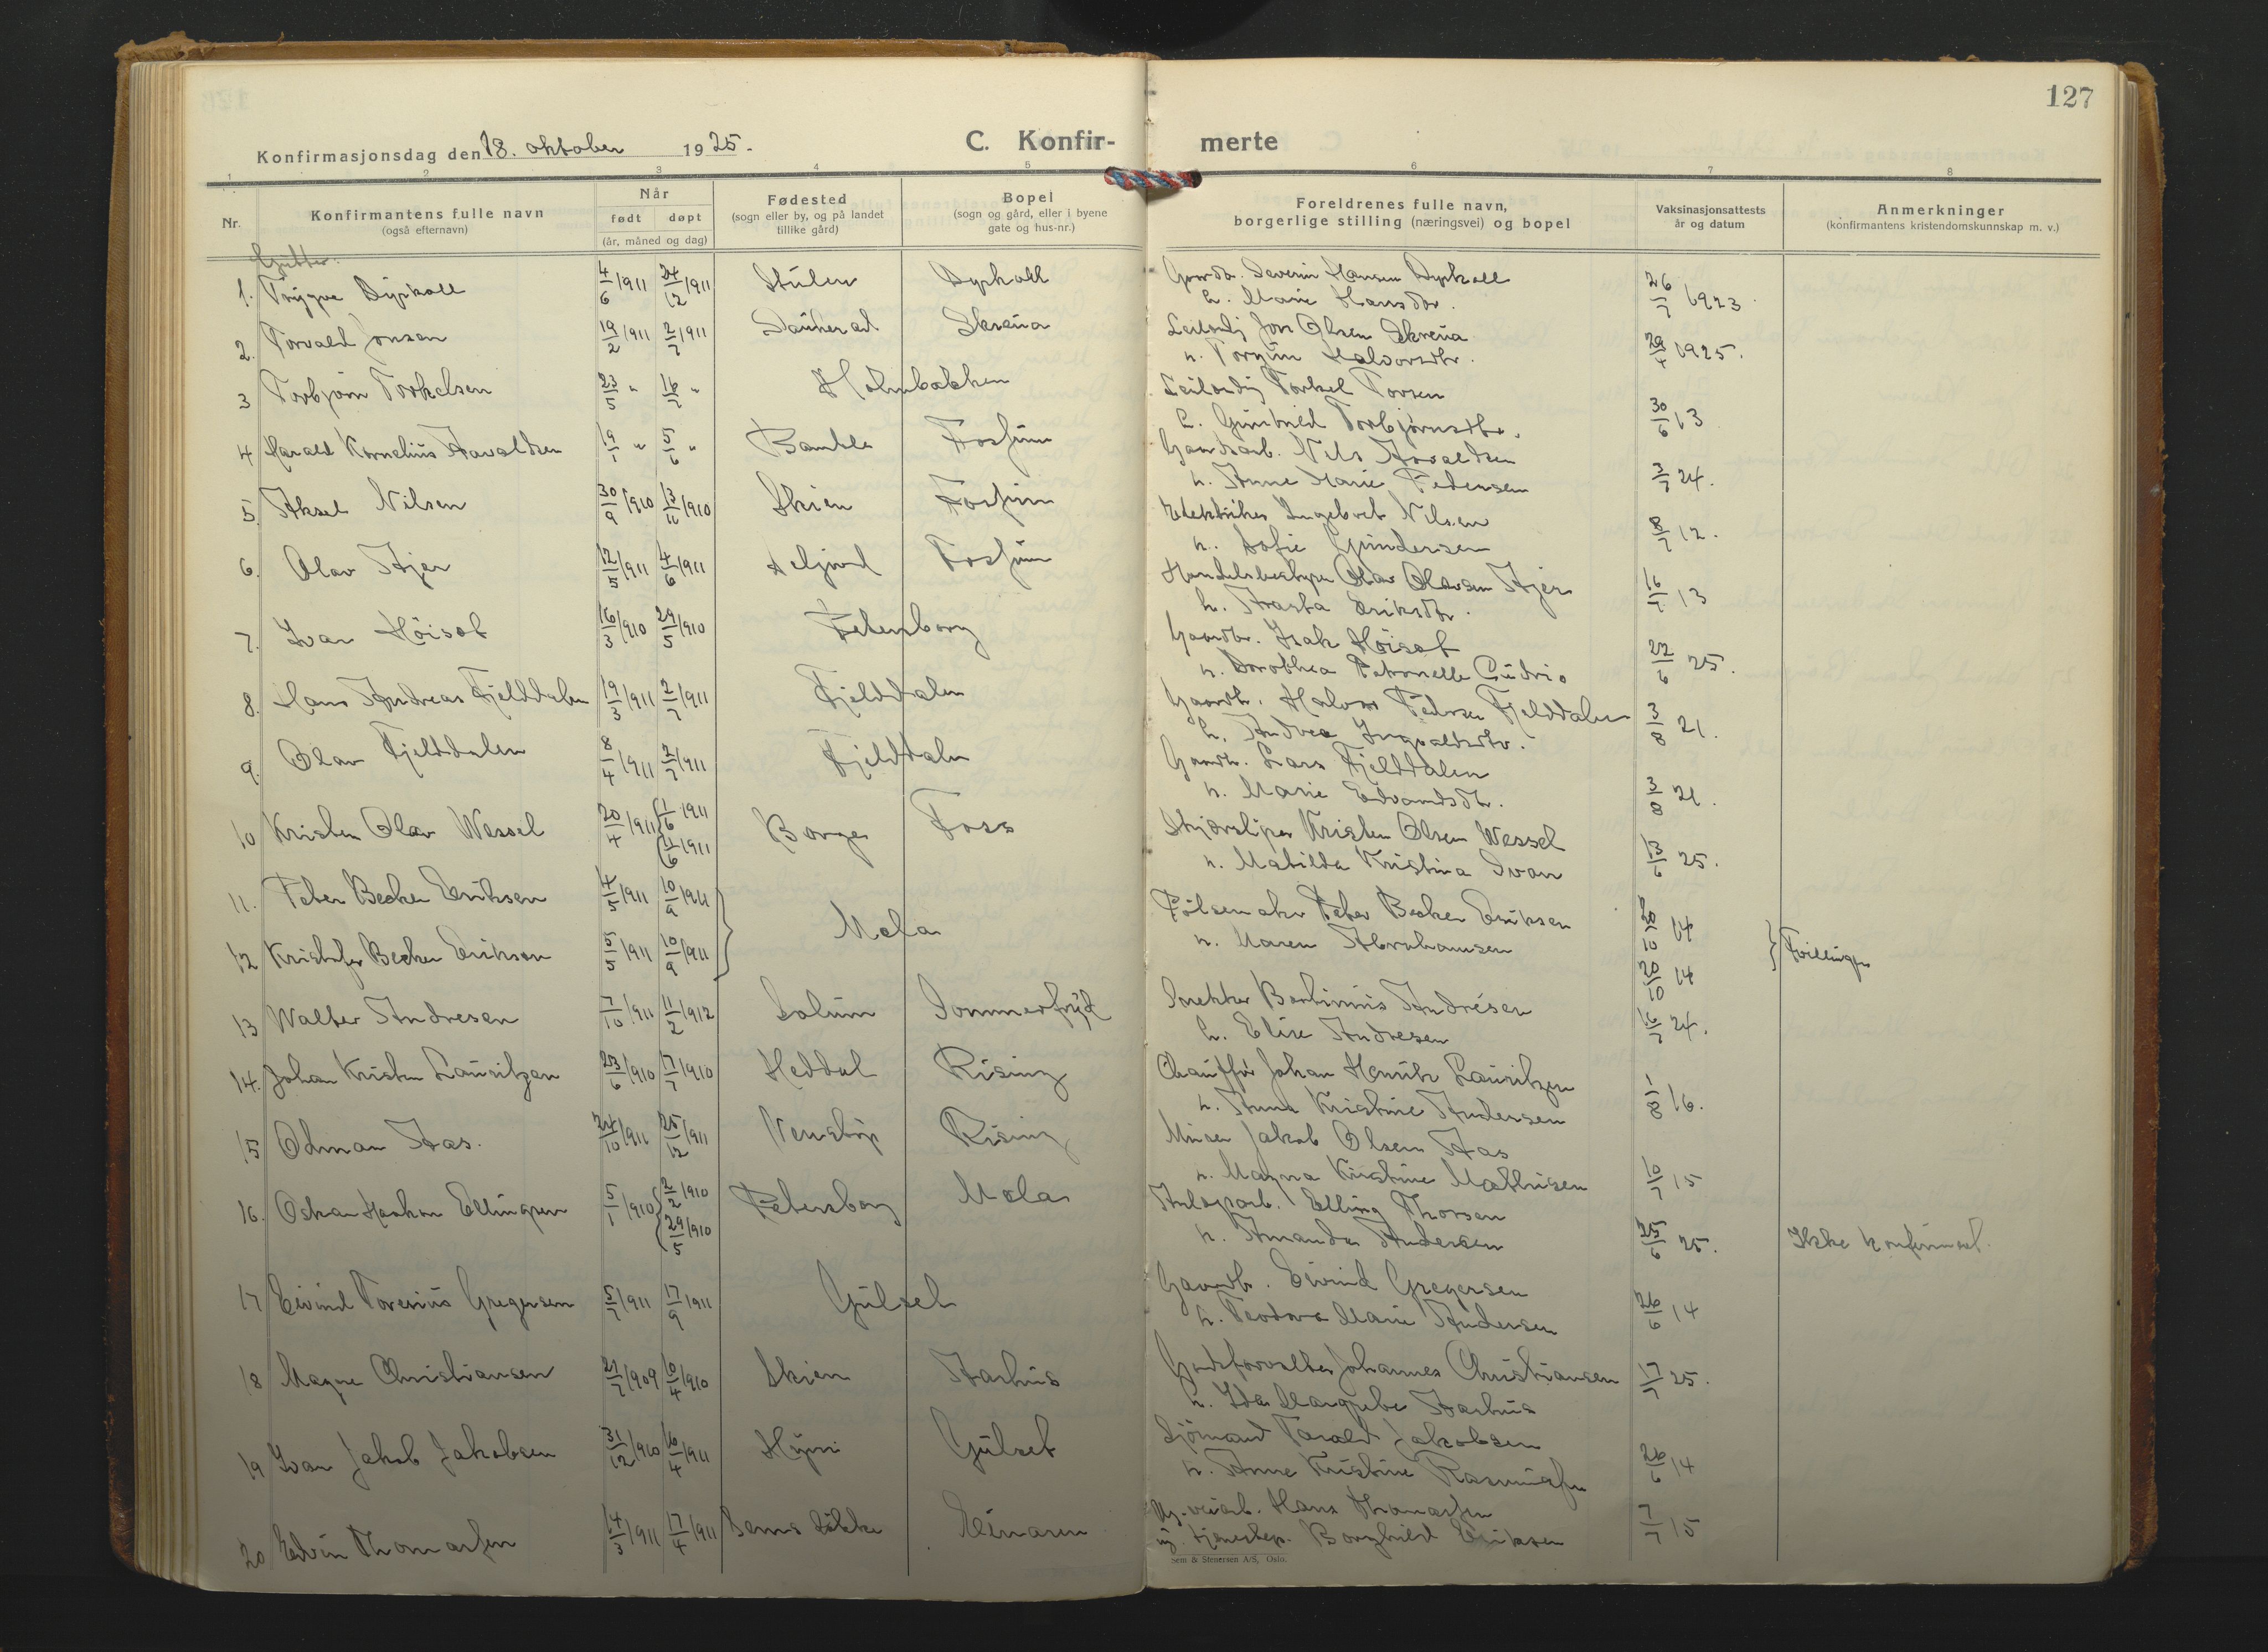 127
Konfirmasjonsdag den 18. oktober 1925.
C. Konfirmerte
1 2 3 4 5 6 7 8
Nr.
Konfirmantens fulle navn
(også efternavn)
Når
født døpt
(år, måned og dag)
Fødested
(sogn eller by, og på landet
tillike gård)
Bopel
(sogn og gård, eller i byene
gate og hus-nr.)
Foreldrenes fulle navn,
borgerlige stilling (næringsvei) og bopel
Vaksinasjonsattests
år og datum
Anmerkninger
(konfirmantens kristendomskunnskap m. v.)
Gutter.
1. Trygve Dypkall 4/6 1911 24/12 1911 Stulen Dypkall Gaardbr. Severin Hansen Dypkall 26/7 1923
h. Marie Hansdtr.
2. Torvald Jonsen 19/2 1911 2/7 1911 Sauherad Skreua Leilendg Jon Olsen Skreua 29/4 1925.
h. Torgun Halvorsdtr.
3 Torbjørn Torkelsen 23/5 " 16/7 " Holmbakken Leilendig Torkel Torsen 30/6 13
h. Gunhild Torbjørnsdtr.
4 Harald Kornelius Aavaldsen 19/1 " 5/6 " Bamble Fossum Gaardsarb. Nils Aavaldsen 3/7 24.
h. Anne Marie Pedersen
5. Aksel Nilsen 30/9 1910 13/11 1910 Skien Fossum Elektriker Ingebret Nilsen 8/7 12.
h. Sofie Gundersen
6. Olav Ajer 12/5 1911 4/6 1911 Seljord Fossum Handelsbestyrer Olav Olavsen Ajer 16/7 13
h. Aasta Eriksdtr.
7. Ivar Höisæt 16/3 1910 29/5 1910 Petersborg Gaardbr. Isak Höisæt 22/6 25.
h. Dorothea Petronelle
8. Hans Andreas Fjelddalen 19/3 1911 2/7 1911 Fjelddalen Gaardbr. Halvor Pedersen Fjelddalen 3/8 21.
h. Andrea Ingvaldsdtr.
9. Olav Fjelddalen 8/4 1911 2/7 1911 Fjelddalen Gaardbr. Lars Fjelddalen 3/8 21.
h. Marie Edvardsdtr.
10 Kristen Olav Wessel 20/4 1911 1/6 1911 Borge Foss Kristen Olsen Wessel 13/6 25.
11/6 1911 h. Matilda Kristina
11. Peter Becker Eriksen 4/5 1911 10/9 1911 Mæla Pølsemaker Peter Becker Eriksen 20/10 14
12 Kristofer Becker Eriksen 5/5 1911 10/9 1911 h. Maren Abrahamsen 20/10 14 Tvillinger
13 Walter Andresen 7/10 1911 11/2 1912 Solum Sommerfryd Snekker Andresen 16/7 24.
h. Elise Andresen
14. Johan Kristen Lauritzen 23/6 1910 17/7 1910 Heddal Rising Chauffør Johan Henrik Lauritzen 1/8 16.
h. Anna Kristine Andersen
15 Odmar Aas. 24/10 1911 25/12 1911 Venstöp Rising Minør Jakob Olsen Aas 10/7 15
h. Magna Kristine Mathisen
16. Oskar Haakon Ellingsen 5/1 1910 2/2 1910 Petersborg Mæla Elling Thorsen 25/6 25. Ikke konfirmert.
29/5 1910 h. Amanda Andersen
17 Eivind Torenius Gregersen 5/7 1911 17/9 1911 Gulset Gaardbr. Eivind Gregersen 26/6 14
h. Teodora Marie Andersen
18 Magne Christiansen 21/7 1909 10/4 1910 Skien Aarhus Godsforvalter Johannes Christiansen 17/7 25.
h. Ida Margrethe Aarhus
19 Ivar Jakob Jakobsen 31/12 1910 16/4 1911 Hyni Gulset Sjömand Tarald Jakobsen 26/6 14
h. Anne Kristine Rasmussen
20 Edvin Thomassen 14/3 1911 17/4 1911 Bernslökke Elinaren Ug. veiarb. Hans Thomassen 7/7 15
ug. tjenestep. Borghild Eriksen
Sem & Stenersen A/S, Oslo.